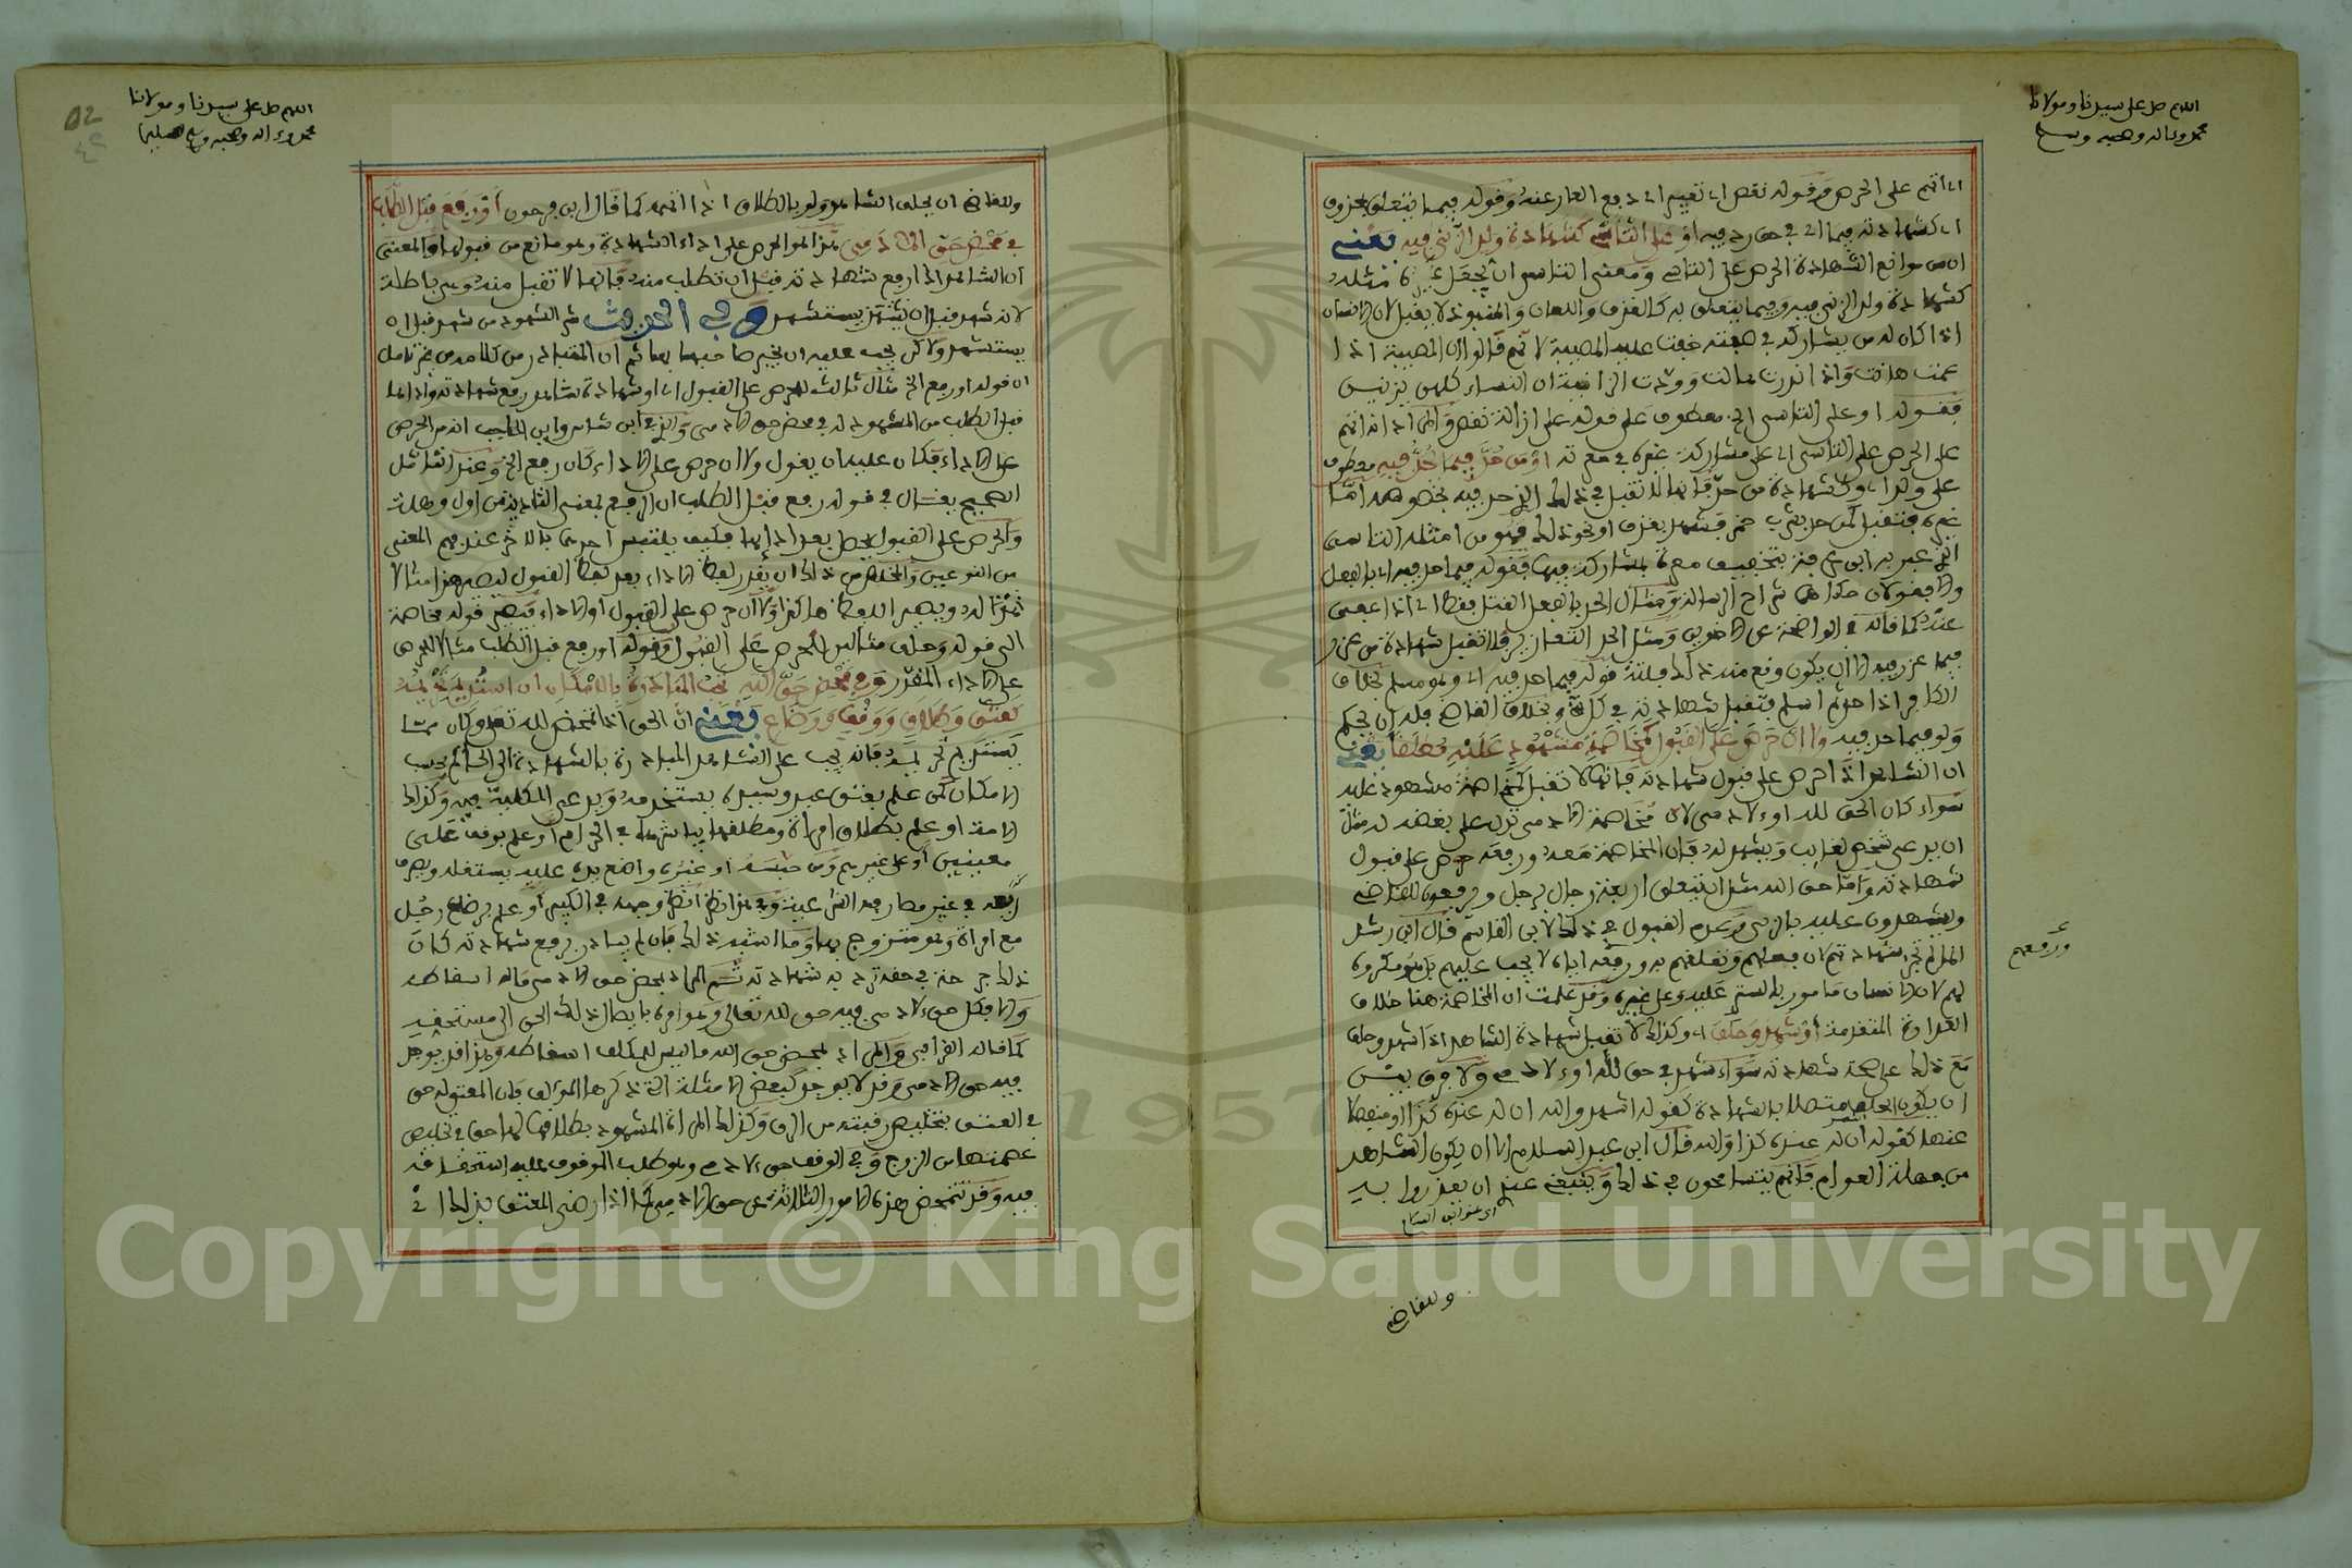 اللهم صل على سيدنا ومولانا
محمد وءاله وصحبه وسلم
اي اتهم على الحرص وقوله نقص اي تعيير اي دفع العار عنه وقوله فيما يتعلق بحذوف
اي كشهادته فيما اي في حق رد فيه او على التاسي كشهادة ولد الزنى فيه يعني
ان من موانع الشهادة الحرص على التاسي ومعنى التاسي ان يجعل غيره مثله
كشهادة ولد الزنى فيه وفيما يتعلق به كالقذف واللعان والمنبوذ لا يقبل لان الانسان
اذا كان له من يشاركه في صفته خفت عليه المصيبة لانهم قالوا ان المصيبة اذا
عمت هانت واذا ندرت هالت وودت الزانية ان النساء كلهن يزنين
فقوله او على التاسي الخ معطوف على قوله على ازالة نقص والمراد انه اتهم
على الحرص على التاسي اي على مشاركة غيره في معرته او من حد فيما حد فيه معطوف
على ولد اي وكشهادة من حد فانها لا تقبل في ذلك الذي حد فيه بخصوصه اما
غيره فتقبل كمن حد بشرب خمر فشهد بقذف او نحو ذلك فهو من امثلة التاسي
الذي عبر به ابن عرفة بتخفيف معرة بمشاركة فيها فقوله فيما حد فيه اي بالفعل
عنه كما قاله في الواضحة عن الاخوين ومثل الحد التعازير فلا تقبل شهادة من عزر
فيما عزر فيه الا ان يكون وقع منه ذلك فلتة قوله فيما حد فيه اي وهو مسلم بخلاف
الكافر اذا حد ثم اسلم فتقبل شهادته في كل شيء وبخلاف القاضي فله ان يحكم
ولو فيما حد فيه ولا ان حرص على القبول كمخاصمة مشهود عليه مطلقا يعني
ان الشاهد اذا حرص على قبول شهادته فانها لا تقبل كمخاصمة مشهود عليه
سواء كان الحق لله او ءلادمي لان مخاصمة الادمي تدل على بغضه له مثل
ان يدعي شخص لغائب ويشهد له فان المخاصمة معه ورفعه حرص على قبول
شهادته واما حق الله مثل ان يتعلق اربعة رجال برجل ويرفعون للقاضي
ويشهدون عليه بالزنى وعدم القبول في ذلك لابن القاسم قال ابن رشد
انما لم تجز شهادتهم لان فعلهم وتعلقهم به ورفعه اياه لا يجب عليهم بل هو مكروه
لهم لان الانسان مامور بالستر عليه وعلى غيره وقد علمت ان المخاصمة هنا خلاف
العداوة المتقدمة او شهد وحلف اي وكذلك لا تقبل شهادة الشاهد اذا شهد وحلف
مع ذلك على صحة شهادته سواء شهد في حق لله او ءلادمي ولا فرق بين
ان يكون الحلف متصلا بالشهادة كقوله اشهد والله ان له عنده كذا او منفصلا
عنها كقوله ان له عنده كذا والله قال ابن عبد السلام الا ان يكون الشاهد
من جهلة العوام فانهم يتسامحون في ذلك وينبغي عندي ان يعذروا به
اي عند ابن عبد السلام
ورفعهم
وللقاضي
52
اللهم صل على سيدنا ومولانا
محمد وءاله وصحبه وسلم تسليما
وللقاضي ان يحلف الشاهد ولو بالطلاق اذا اتهمه كما قال ابن فرحون او رفع قبل الطلب
في محض حق الادمي هذا هو الحرص على اداء الشهادة وهو مانع من قبولها والمعنى
ان الشاهد اذا رفع شهادته قبل ان تطلب منه فانها لا تقبل منه وهي باطلة
لانه شهد قبل ان يستشهد وفي الحديث شر الشهود من شهد قبل ان
يستشهد ولاكن يجب عليه ان يخبر صاحبها بها ثم ان المتبادر من كلامه من غير تامل
ان قوله او رفع الخ مثال ثالث للحرص على القبول اي او شهادة شاهد رفع شهادته وادائها
قبل الطلب من المشهود له في محض حق الادمي والذي في ابن شاس وابن الحاجب انه من الحرص
على الاداء فكان عليه ان يقول ولا ان حرص على الاداء كان رفع الخ وعند التامل
الصحيح يقال في قوله رفع قبل الطلب ان الرفع بمعنى التادية من اول وهلة
والحرص على القبول يحصل بعد ادائها فكيف يلتبس احدهما بالاخر عند فهم المعنى
من النوعين والمخلص من ذلك ان يقدر لفظ الاداء بعد لفظ القبول ليصير هذا مثالا
له ويصير اللفظ هكذا ولا ان حرص على القبول او الاداء فيصير قوله مخاصمة
الى قوله وحلف مثالين للحرص على القبول وقوله او رفع قبل الطلب مثالا للحرص
على الاداء المقدر وفي محض حق الله تجب المبادرة بالامكان ان استديم تحريمه
كعتق وطلاق ووقف ورضاع يعني ان الحق اذا تمحض لله تعلى وكان مما
يستديم تحريمه فانه يجب على الشاهد المبادرة بالشهادة الى الحاكم بحسب
الامكان كمن علم بعتق عبد وسيده يستخدمه ويدعي الملكية فيه وكذلك
الامة او علم بطلاق امراة ومطلقها يباشرها في الحرام او علم بوقف على
معينين او على غيرهم ومن حبسه او غيره واضع يده عليه يستغله ويصرف
ريعه في غير مصارفه الشرعية وفي هذا نظر انظر وجهه في الكبير او علم برضاع رجل
مع امراة وهو متزوج بها وما اشبه ذلك فان لم يبادر برفع شهادته كان
ذلك جرحة في حقه ترد به شهادته ثم المراد بمحض حق الادمي ما له اسقاطه
والا فكل حق ءلادمي فيه حق لله تعالى وهو امره بايصال ذلك الحق الى مستحقه
كما قاله القرافي والمراد بمحض حق الله ما ليس للمكلف اسقاطه وهذا قد يوجد
فيه حق الادمي وقد لا يوجد كبعض الامثلة التي ذكرها المؤلف فان المعتق له حق
في العتق بتخليص رقبته من الرق وكذلك المراة المشهود بطلاقها لها حق في تخليص
عصمتها من الزوج وفي الوقف حق ءلادمي وهو طلب الموقوف عليه استحقاقه
فيه وقد تتمحض هذه الامور الثلاثة عن حق الادمي كما اذا رضي المعتق بذلك او
Copyright © King Saud University
1957